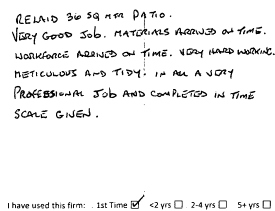 RELAID 36 SQ MTR PATIO.
VERY GOOD JOB. MATERIALS ARRIVED ON TIME.
WORKFORCE ARRIVED ON TIME. VERY HARD WORKING.
METICULOUS AND TIDY. IN ALL A VERY
PROFESSIONAL JOB AND COMPLETED IN TIME
SCALE GIVEN.
I have used this firm: 1st Time ☑ <2 yrs ☐ 2-4 yrs ☐ 5+ yrs ☐